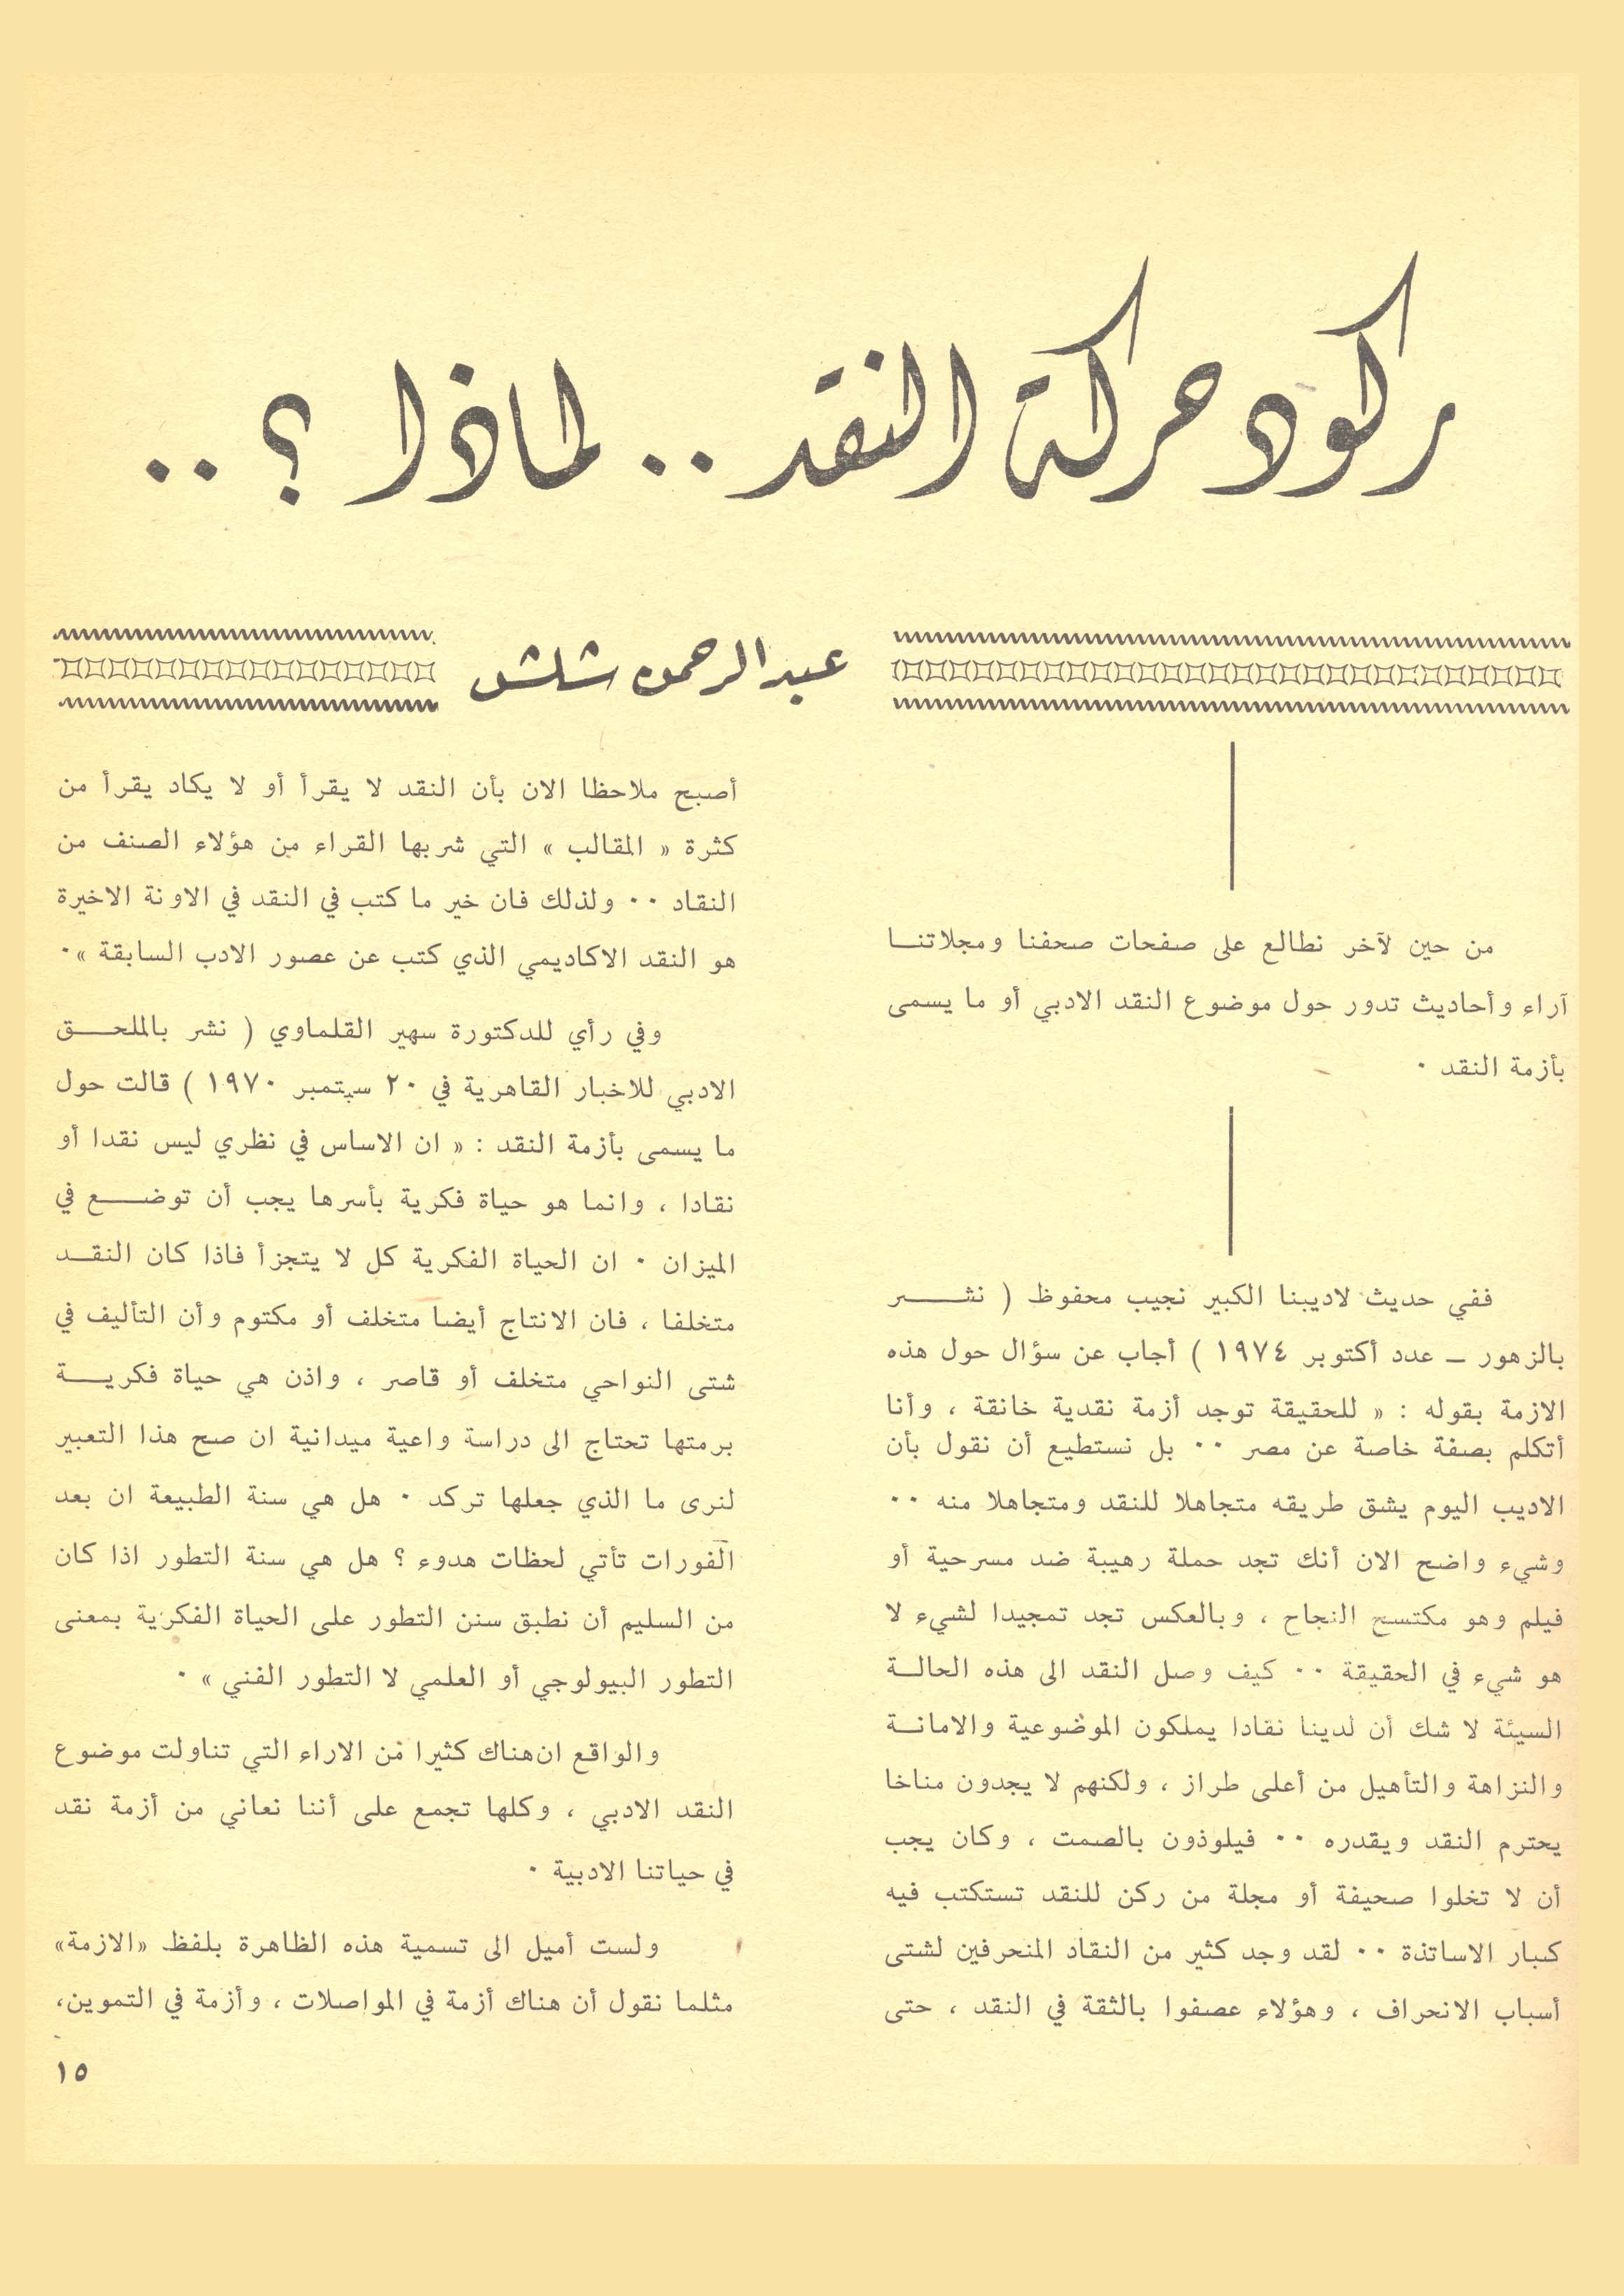 ركود حركة النقد .. لماذا ؟ ..
عبد الرحمن شلش
من حين لآخر نطالع على صفحات صحفنا ومجلاتنا
آراء وأحاديث تدور حول موضوع النقد الادبي أو ما يسمى
بأزمة النقد ٠
ففي حديث لاديبنا الكبير نجيب محفوظ ( نشر
بالزهور ــ عدد أكتوبر ١٩٧٤ ) أجاب عن سؤال حول هذه
الازمة بقوله : « للحقيقة توجد أزمة نقدية خانقة ، وأنا
أتكلم بصفة خاصة عن مصر ٠٠ بل نستطيع أن نقول بأن
الاديب اليوم يشق طريقه متجاهلا للنقد ومتجاهلا منه ٠٠
وشيء واضح الان أنك تجد حملة رهيبة ضد مسرحية أو
فيلم وهو مكتسح النجاح ، وبالعكس تجد تمجيدا لشيء لا
هو شيء في الحقيقة ٠٠ كيف وصل النقد الى هذه الحالة
السيئة لا شك أن لدينا نقادا يملكون الموضوعية والامانة
والنزاهة والتأهيل من أعلى طراز ، ولكنهم لا يجدون مناخا
يحترم النقد ويقدره ٠٠ فيلوذون بالصمت ، وكان يجب
أن لا تخلوا صحيفة أو مجلة من ركن للنقد تستكتب فيه
كبار الاساتذة ٠٠ لقد وجد كثير من النقاد المنحرفين لشتى
أسباب الانحراف ، وهؤلاء عصفوا بالثقة في النقد ، حتى
أصبح ملاحظا الان بأن النقد لا يقرأ أو لا يكاد يقرأ من
كثرة « المقالب » التي شربها القراء من هؤلاء الصنف من
النقاد ٠٠ ولذلك فان خير ما كتب في النقد في الاونة الاخيرة
هو النقد الاكاديمي الذي كتب عن عصور الادب السابقة »٠
وفي رأي للدكتورة سهير القلماوي ( نشر بالملحق
الادبي للاخبار القاهرية في ٢٠ سبتمبر ١٩٧٠ ) قالت حول
ما يسمى بأزمة النقد : « ان الاساس في نظري ليس نقدا أو
نقادا ، وانما هو حياة فكرية بأسرها يجب أن توضع في
الميزان ٠ ان الحياة الفكرية كل لا يتجزأ فاذا كان النقد
متخلفا ، فان الانتاج أيضا متخلف أو مكتوم وأن التأليف في
شتى النواحي متخلف أو قاصر ، واذن هي حياة فكرية
برمتها تحتاج الى دراسة واعية ميدانية ان صح هذا التعبير
لنرى ما الذي جعلها تركد ٠ هل هي سنة الطبيعة ان بعد
الفورات تأتي لحظات هدوء ؟ هل هي سنة التطور اذا كان
من السليم أن نطبق سنن التطور على الحياة الفكرية بمعنى
التطور البيولوجي أو العلمي لا التطور الفني » ٠
والواقع ان هناك كثيرا من الاراء التي تناولت موضوع
النقد الادبي ، وكلها تجمع على أننا نعاني من أزمة نقد
في حياتنا الادبية ٠
ولست أميل الى تسمية هذه الظاهرة بلفظ «الازمة»
مثلما نقول أن هناك أزمة في المواصلات ، وأزمة في التموين،
١٥